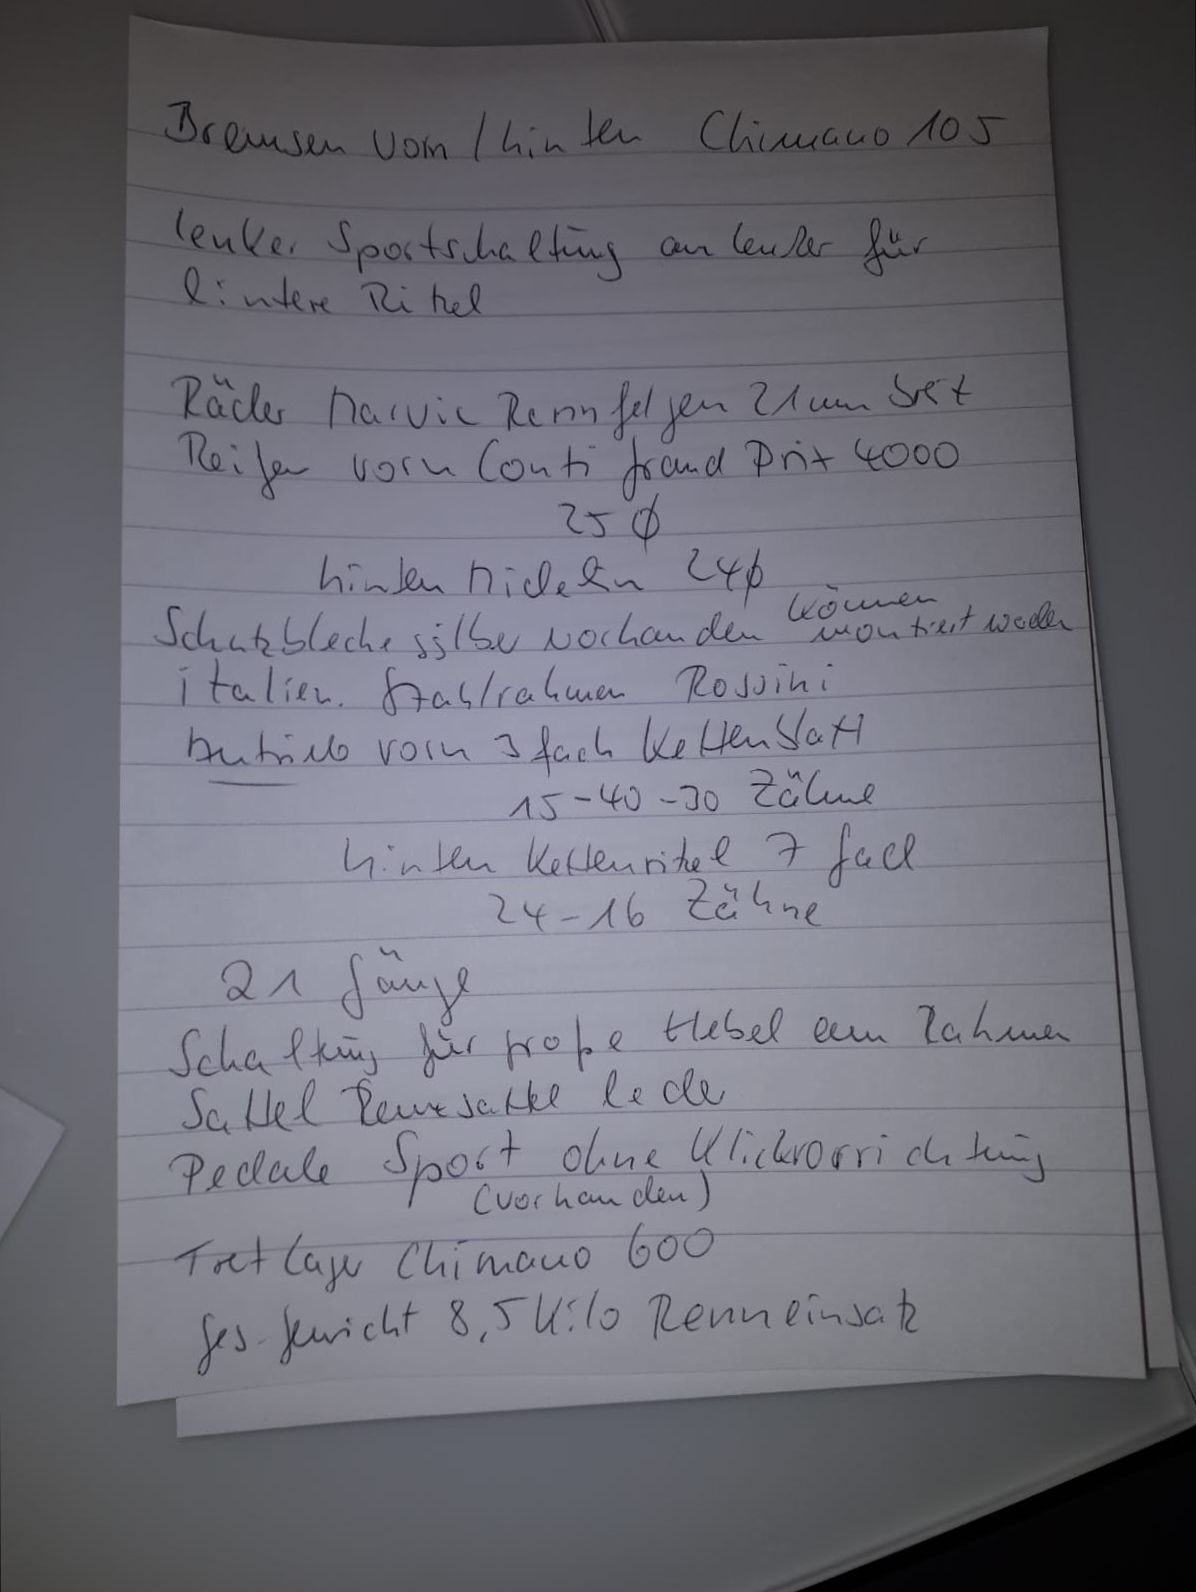 Bremsen vorn / hinten Chimano 105
lenker Sportschaltung am lenker für
hintere Ritzel
Räder Mavic Rennfelgen 21mm breit
Reifen vorn Conti Grand Prix 4000
25 ø
hinten Michelin 24 ø
Schutzbleche silber vorhanden können
montiert werden
italien. Stahlrahmen Rossini
Antrieb vorn 3 fach Kettenblatt
15-40-30 Zähne
hinten Kettenritzel 7 fach
24-16 Zähne
21 Gänge
Schaltung für große Hebel am Rahmen
Sattel Rennsattel leder
Pedale Sport ohne Klickvorrichtung
(vorhanden)
Tretlager Chimano 600
ges. gewicht 8,5 Kilo Renneinsatz